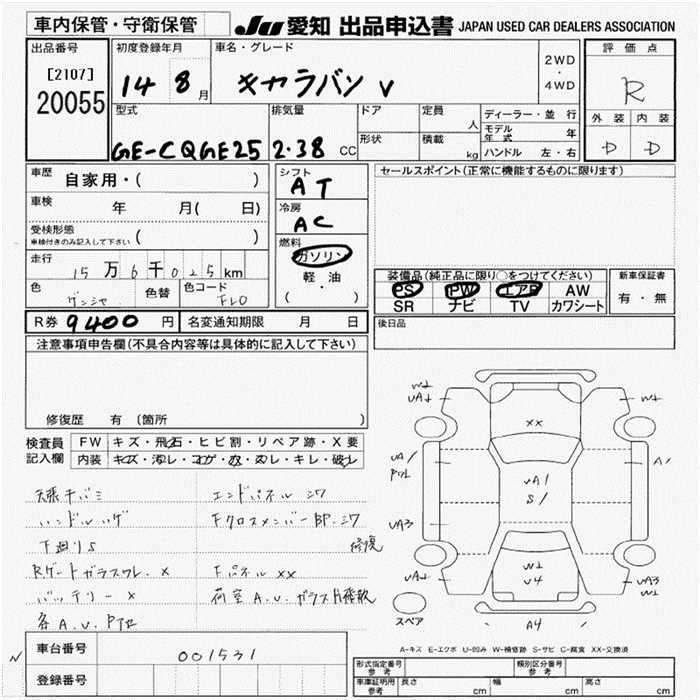 車内保管・守衛保管 JU 愛知 出品申込書 JAPAN USED CAR DEALERS ASSOCIATION
出品番号 初度登録年月 車名・グレード 評価点
[2107] 2WD
20055 14 8月 キャラバン V ・ R
4WD
型式 排気量 ドア 定員 人 ディーラー・並行 外装 内装
形状 積載 kg モデル年式 年
GE-CQGE25 2.38 CC ハンドル 左・右 D D
車歴 自家用・( ) シフト AT セールスポイント(正常に機能するものに限ります)
車検 年 月( 日) 冷房 AC
受検形態 ( )
車検付きのみ記入して下さい
燃料
走行 15万6千025km ガソリン 装備品(純正品に限り○をつけてください) 新車保証書
色 色替 色コード 軽・油 PS PW エアB AW 有・無
(・) SR ナビ TV カワシート
R券 9400 円 名変通知期限 月 日 後日品
注意事項申告欄(不具合内容等は具体的に記入して下さい)
修復歴 有 (箇所 )
検査員 FW キズ・飛石・ヒビ割・リペア跡・X要
記入欄 内装 キズ・汚レ・コゲ・穴・スレ・キレ・破レ
W2
UA1
XX
W2
UA1
S1
A1
UA3
W2
U4
UA3
W1
A4
スペア
天張干バミ エンドパネル シワ
ハンドルハゲ FクロスメンバーBP.シワ
下廻りS 修復
Rゲートガラスワレ X Fパネル XX
バッテリー X 荷室A.U.ガラス
各A.U.
A-キズ E-エクボ U-凹み W-補修跡 S-サビ C-腐食 XX-交換済
車台番号 001531
登録番号
形式指定番号 参考 類別区分番号 参考
車庫証明用 参考 長さ cm 幅 cm 高さ cm